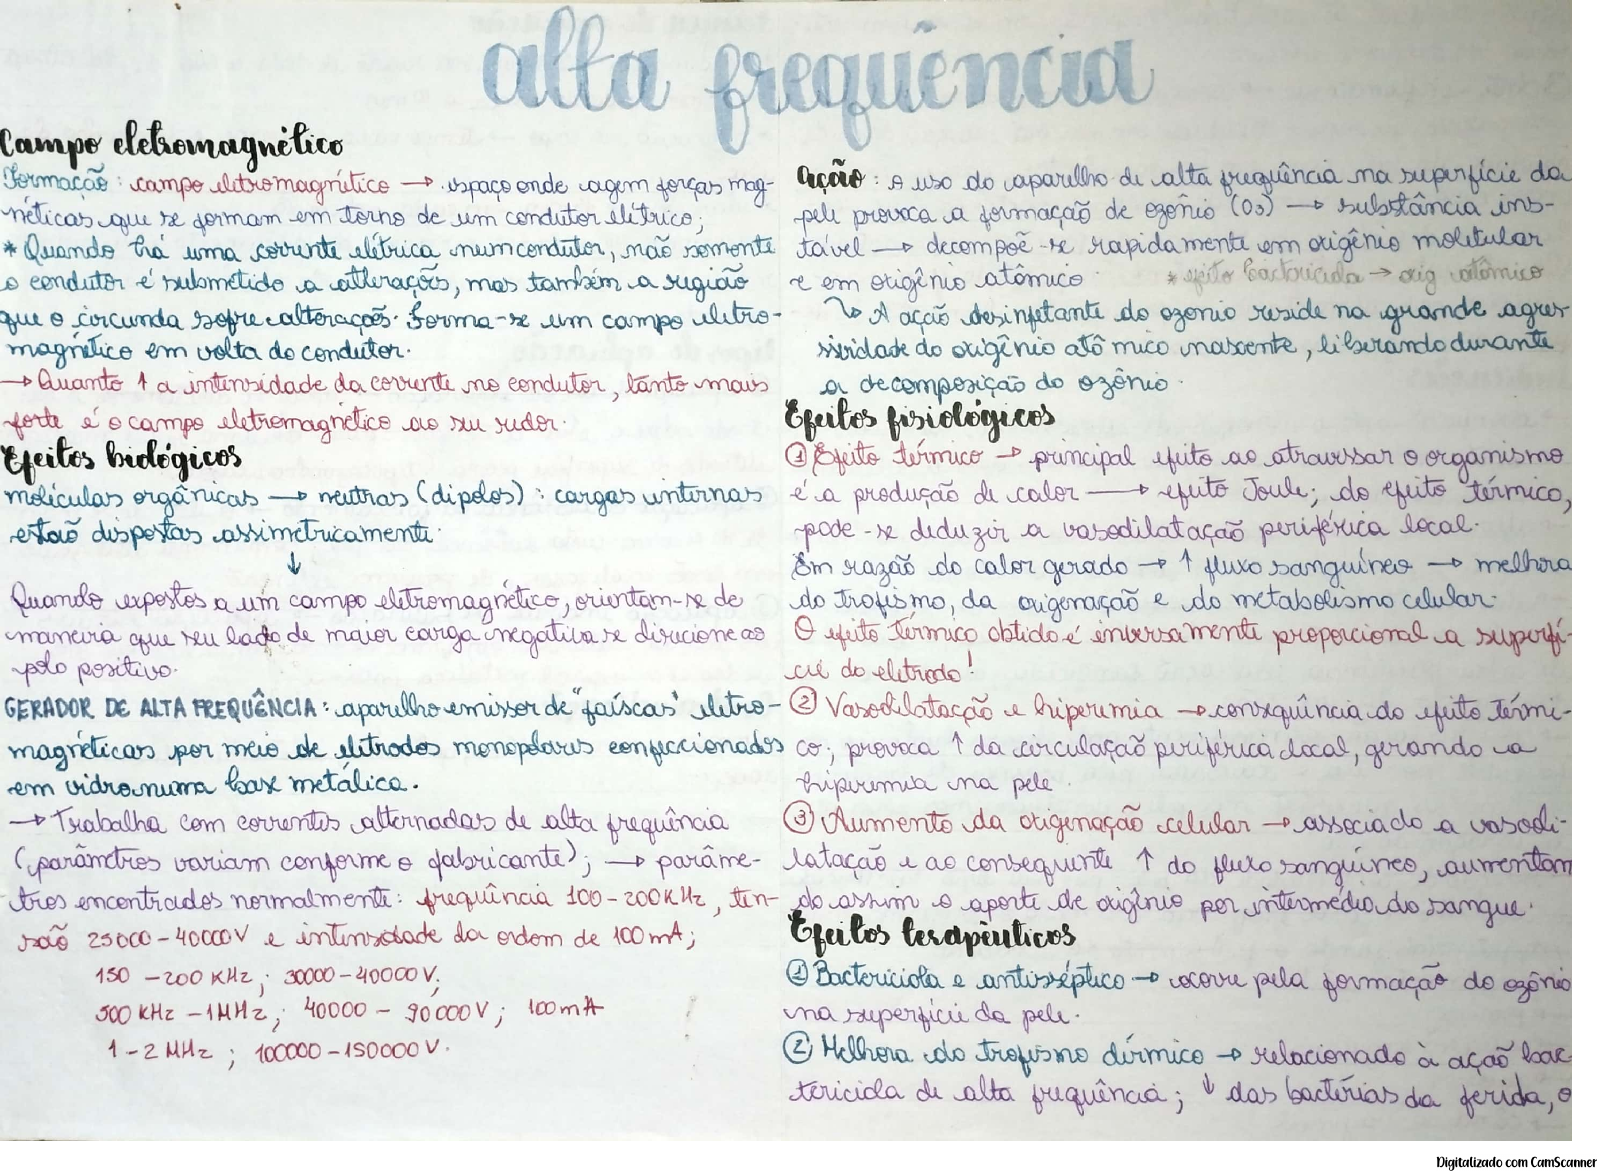 alta frequência
Campo eletromagnético
Formação: campo eletromagnético → espaço onde agem forças mag-
néticas que se formam em torno de um condutor elétrico;
* Quando há uma corrente elétrica num condutor, não somente
o condutor é submetido a alterações, mas também a região
que o circunda sofre alterações. Forma-se um campo eletro-
magnético em volta do condutor.
→ Quanto ↑ a intensidade da corrente no condutor, tanto mais
forte é o campo eletromagnético ao seu redor.
Efeitos biológicos
moléculas orgânicas → neutras (dipolos): cargas internas
estão dispostas assimetricamente.
↓
Quando expostos a um campo eletromagnético, orientam-se de
maneira que seu lado de maior carga negativa se direcione ao
polo positivo.
GERADOR DE ALTA FREQUÊNCIA: aparelho emissor de "faíscas" eletro-
magnéticas por meio de eletrodos monopolares confeccionados
em vidro numa base metálica.
→ Trabalha com correntes alternadas de alta frequência
(parâmetros variam conforme o fabricante); → parâme-
tros encontrados normalmente: frequência 100-200KHz, ten-
são 25000-40000V e intensidade da ordem de 100mA;
150 - 200 KHz; 30000-40000V;
500 KHz - 1MHz; 40000 - 90000V; 100mA
1-2 MHz; 100000-150000V.
Ação: O uso do aparelho de alta frequência na superfície da
pele provoca a formação de ozônio (O3) → substância ins-
tável → decompõe-se rapidamente em oxigênio molecular
e em oxigênio atômico * efeito bactericida → oxig atômico
↳ A ação desinfetante do ozonio reside na grande agres-
sividade do oxigênio atômico nascente, liberando durante
a decomposição do ozônio.
Efeitos fisiológicos
① Efeito térmico → principal efeito ao atravessar o organismo
é a produção de calor → efeito Joule; do efeito térmico,
pode-se deduzir a vasodilatação periférica local.
Em razão do calor gerado → ↑ fluxo sanguíneo → melhora
do trofismo, da oxigenação e do metabolismo celular.
O efeito térmico obtido é inversamente proporcional a superfí-
cie do eletrodo!
② Vasodilatação e hiperemia → consequência do efeito térmi-
co; provoca ↑ da circulação periférica local, gerando a
hiperemia na pele.
③ Aumento da oxigenação celular → associado a vasodi-
latação e ao consequente ↑ do fluxo sanguíneo, aumentan
do assim o aporte de oxigênio por intermédio do sangue.
Efeitos terapêuticos
① Bactericida e antisséptico → ocorre pela formação do ozônio
na superfície da pele.
② Melhora do trofismo dérmico → relacionado à ação bac-
tericida de alta frequência; ↓ das bactérias da ferida, o
Digitalizado com CamScanner